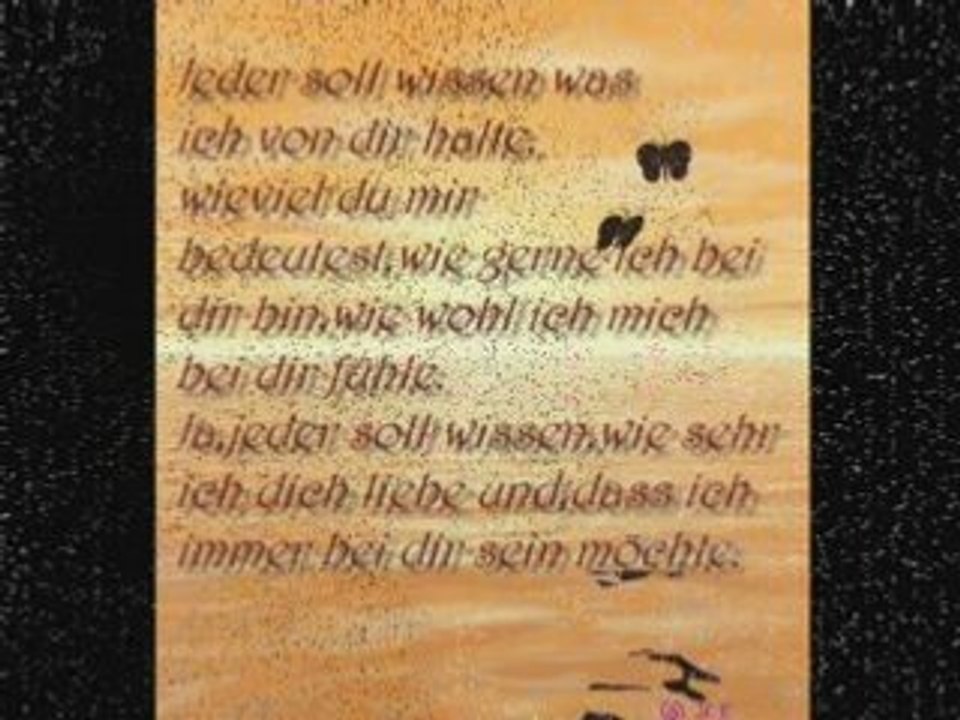 Jeder soll wissen was
ich von dir halte,
wieviel du mir
bedeutest,wie gerne ich bei
dir bin,wie wohl ich mich
bei dir fühle.
Ja,jeder soll wissen,wie sehr
ich dich liebe und,dass ich
immer bei dir sein möchte.